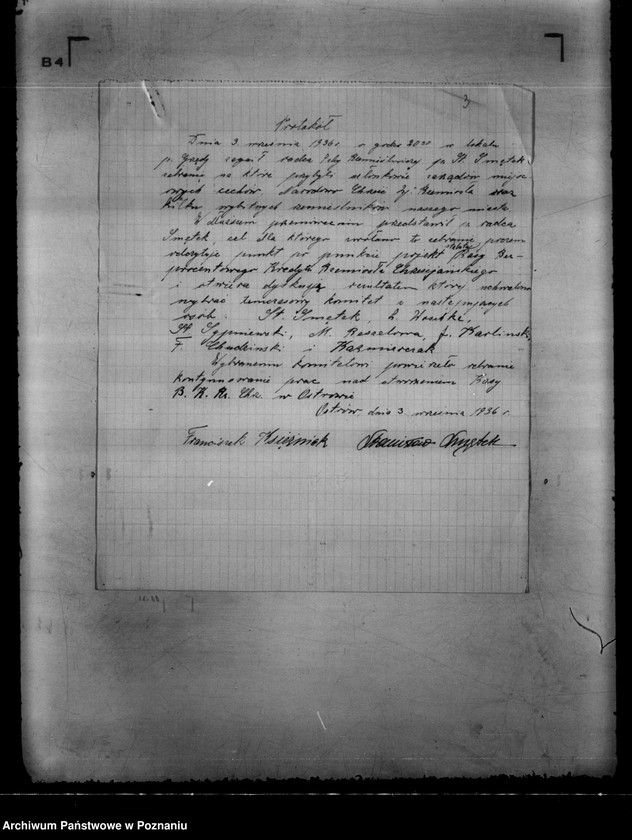 B4
3
Protokół
Dnia 3 września 1936 r. o godz 20 w lokalu
p. Gazdy zagaił radca Izby Rzemieślniczej p. St. Smętek
zebranie na które przybyli członkowie zarządów miejsc
owych cechów, Narodowo Chrześc. Zj. Rzemiosła oraz
kilku wybitnych rzemieślników naszego miasta
W dłuższem przemówieniu przedstawił p. radca
Smętek, cel dla którego zwołano to zebranie, poczem
odczytuje punkt po punkcie projekt statutu Kasy Bez-
procentowego Kredytu Rzemiosła Chrześcijańskiego
i otwiera dyskusję rezultatem której uchwalono
wybrać tymczasowy komitet z następujących
osób: St. Smętek,
St. Sypniewski, M. Resselowa, Karlinski,
F. Chudzinski i Kaźmierczak
Wybranemu komitetowi powierzyło zebranie
kontynuowanie prac nad utworzeniem Kasy
B. K. Rz. Chrz. w Ostrowie
Ostrów, dnia 3. września 1936 r.
Franciszek Księżniak Stanisław Smętek
Archiwum Państwowe w Poznaniu